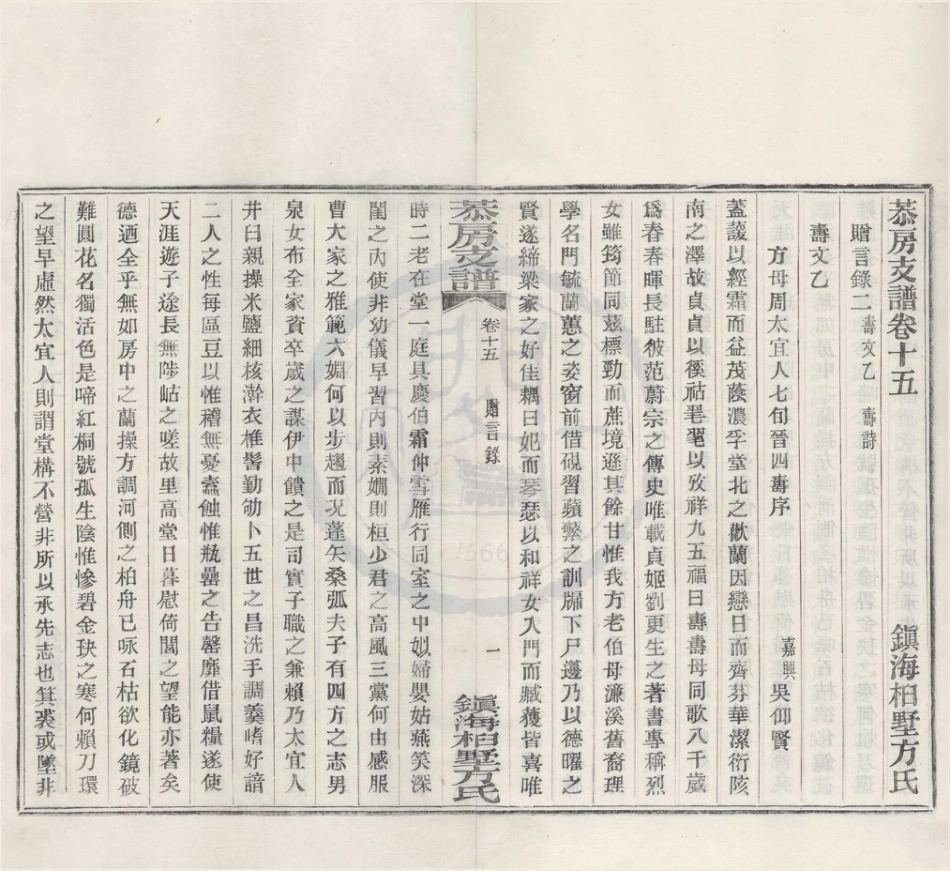 恭房支譜卷十五　鎭海桕墅方氏
贈言錄二 壽文乙 壽詩
壽文乙
方母周太宜人七旬晉四壽序
嘉興 吳仰賢
蓋諼以經霜而益茂蔭濃孚堂北之歡蘭因戀日而齊芬華潔衍陔
南之澤故貞貞以徯祜毣毣以攷祥九五福曰壽壽母同歌八千歲
爲春春暉長駐彼范蔚宗之傳史唯載貞姬劉更生之著書專稱烈
女雖筠節同茲標勁而蔗境遜其餘甘惟我方老伯母濂溪舊裔理
學名門毓蘭蕙之姿窗前借硯習蘋蘩之訓牖下尸邊乃以德曜之
賢遂締梁家之好佳耦曰妃而琴瑟以和祥女入門而臧獲皆喜唯
恭房支譜 卷十五 贈言錄 一 鎭海桕墅方氏
時二老在堂一庭具慶伯霜仲雪雁行同室之中姒婦嬰姑燕笑深
閨之內使非幼儀早習內則素嫻則桓少君之高風三黨何由感服
曹大家之雅範六姻何以步趨而況蓬矢桑弧夫子有四方之志男
泉女布全家資卒歲之謀伊中饋之是司實子職之兼賴乃太宜人
井臼親操米鹽細核澣衣椎髻勤劬卜五世之昌洗手調羹嗜好諳
二人之性每區豆以惟稽無憂蠹蝕惟瓶罍之告罄靡借鼠糧遂使
天涯遊子遠長無陟岵之嗟故里高堂日暮慰倚閭之望能亦著矣
德迺全乎無如房中之蘭操方調河側之柏舟已咏石枯欲化鏡破
難圓花名獨活色是啼紅桐號孤生陰惟慘碧金玦之寒何賴刀環
之望早虛然太宜人則謂堂構不營非所以承先志也箕裘或墜非